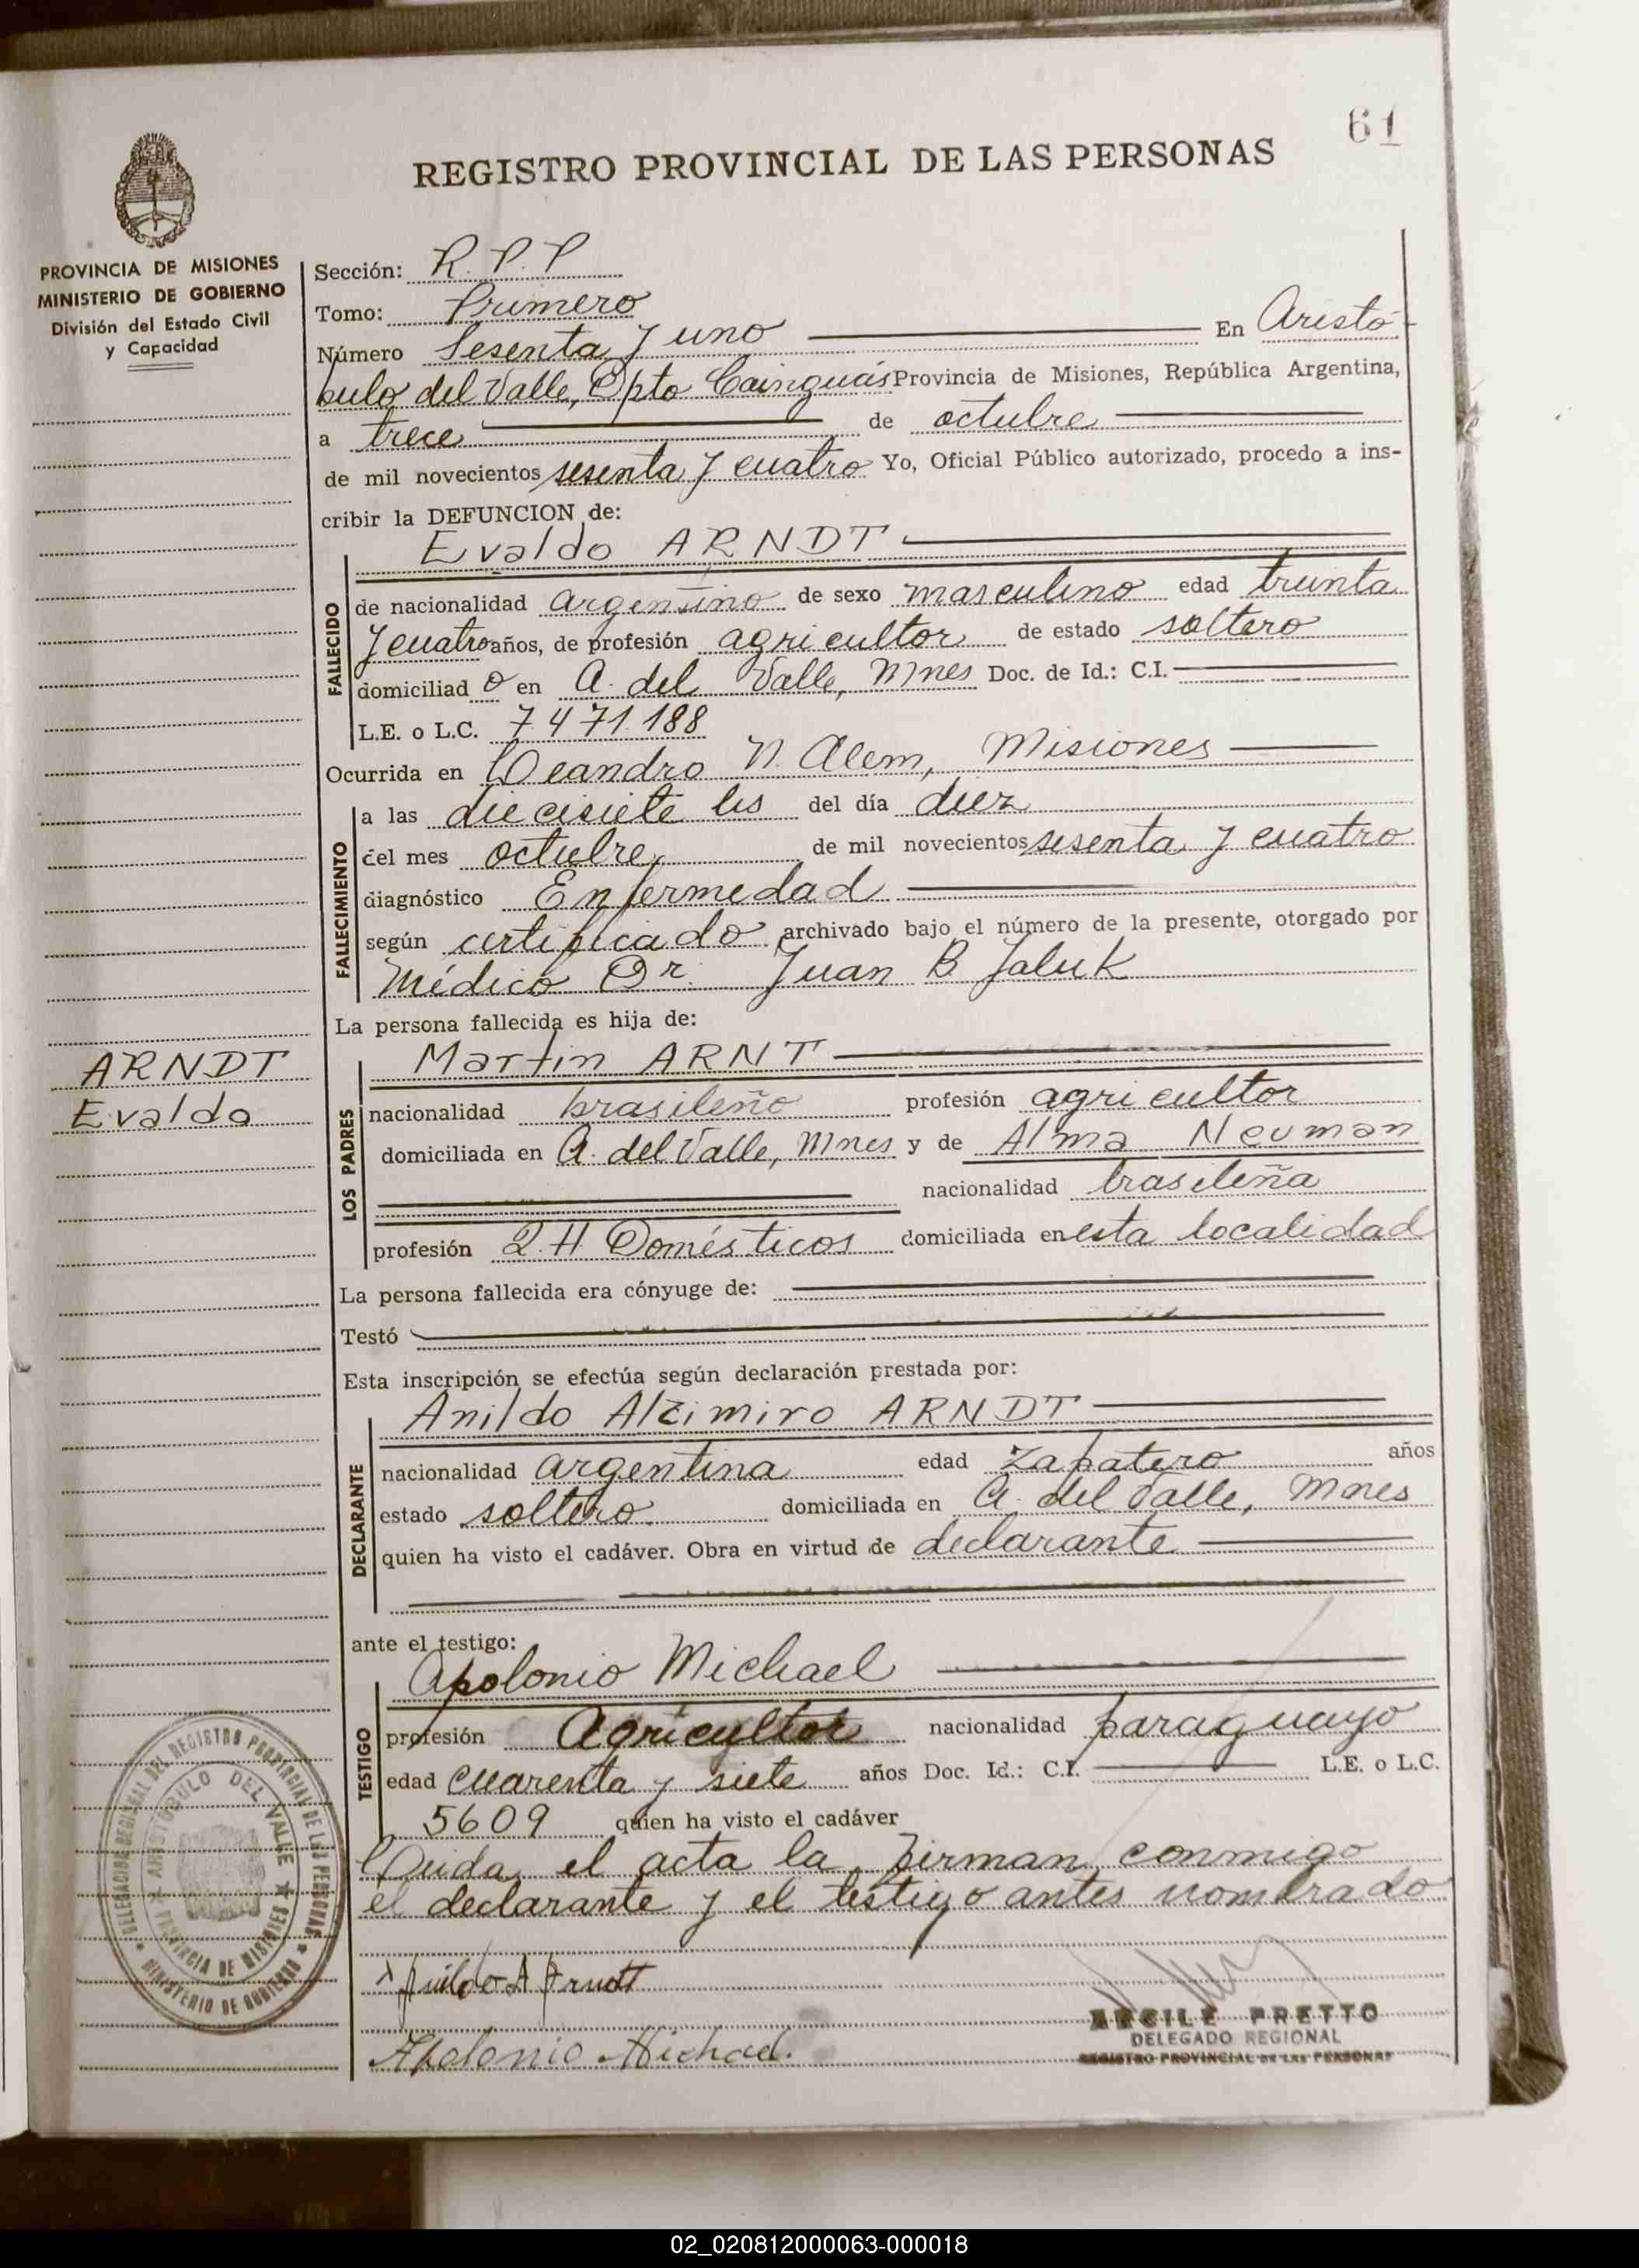 61
REGISTRO PROVINCIAL DE LAS PERSONAS
PROVINCIA DE MISIONES
MINISTERIO DE GOBIERNO
División del Estado Civil
y Capacidad
Sección: R. P. P
Tomo: Primero
Número Sesenta y uno En Aristó-
bulo del Valle, Dpto Cainguás Provincia de Misiones, República Argentina,
a trece de octubre
de mil novecientos sesenta y cuatro Yo, Oficial Público autorizado, procedo a ins-
cribir la DEFUNCION de:
Evaldo ARNDT
FALLECIDO
de nacionalidad argentino de sexo masculino edad treinta
y cuatro años, de profesión agricultor de estado soltero
domiciliad o en A. del Valle, Mnes Doc. de Id.: C.I.
L.E. o L.C. 7471188
Ocurrida en Leandro N. Alem, Misiones
FALLECIMIENTO
a las diecisiete hs del día diez
del mes octubre de mil novecientos sesenta y cuatro
diagnóstico Enfermedad
según certificado archivado bajo el número de la presente, otorgado por
Médico Dr. Juan B. Jaluk
La persona fallecida es hija de:
ARNDT
Evaldo
LOS PADRES
Martin ARNT
nacionalidad brasileño profesión agricultor
domiciliada en A. del Valle, Mnes y de Alma Neuman
nacionalidad brasileña
profesión Q. H Domésticos domiciliada en esta localidad
La persona fallecida era cónyuge de:
Testó
Esta inscripción se efectúa según declaración prestada por:
DECLARANTE
Anildo Alzimiro ARNDT
nacionalidad argentina edad zapatero años
estado soltero domiciliada en A. del Valle, Mnes
quien ha visto el cadáver. Obra en virtud de declarante
ante el testigo:
TESTIGO
Apolonio Michael
profesión Agricultor nacionalidad paraguayo
edad cuarenta y siete años Doc. Id.: C.I. L.E. o L.C.
5609 quien ha visto el cadáver
Leída el acta la firman conmigo
el declarante y el testigo antes nombrado
Anildo A Arndt
Apolonio Michael.
PRETTO
DELEGADO REGIONAL
REGISTRO PROVINCIAL DE LAS PERSONAS
DELEGACION REGIONAL DEL REGISTRO PROVINCIAL DE LAS PERSONAS
ARISTOBULO DEL VALLE
PROVINCIA DE MISIONES
MINISTERIO DE GOBIERNO
02_020812000063-000018